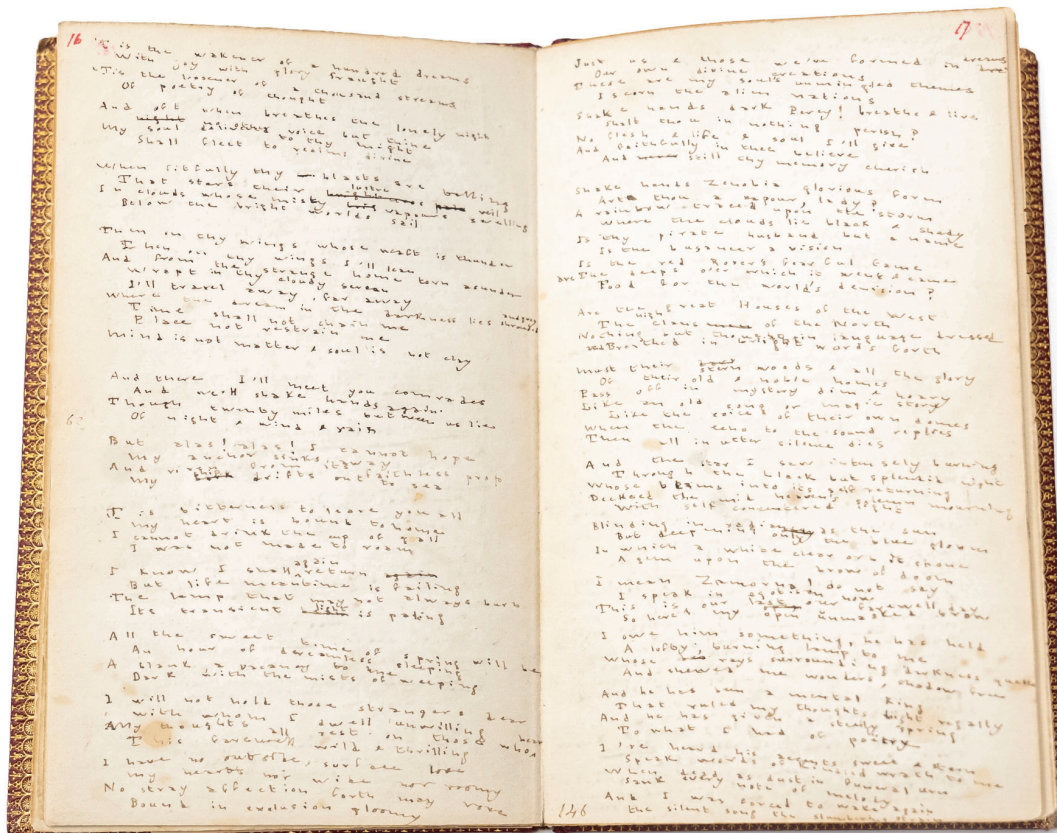 16
'T is the wakener of a hundred dreams
With joy with glory fraught
'Tis the loosener of a thousand streams
Of poetry of thought
And oft when breathes the lonely night
My soul voice but thine
to thy might
Shall fleet to realms divine
When fitfully thy blasts are
That stars their lustre veil
In clouds whose misty vapours swelling
Below the bright worlds sail
Then on thy wings whose waft is thunder
Then on thy wings I'll lean
And from thy strange home torn asunder
Wrapt in thy cloudy screen
I'll travel away, far away
Where the dream in the darkness lies
Time shall not chain me
Place not restrain me
Mind is not matter & soul is not clay
And there I'll meet you comrades
And we'll shake hands again
Though twenty miles between us lie
Of night & wind & rain
But alas! alas! I cannot hope
My anchor sinks
And from its faithless prop
My drifts out to sea
I is bitterness to leave you all
My heart is bound to home
I cannot drink the cup of gall
I was not made to roam
I know I shall return again
But life meantime is failing
The lamp that may not always burn
Its transient light is paling
All the sweet time of spring will be
An hour of dreamless sleeping
A blank, a vacancy to me
Dark with the mists of weeping
I will not hold those strangers dear
With whom I dwell unwilling
My thoughts all rest on those who
This farewell wild & thrilling
I have no outside, surface love
My heart's nor wide nor roomy
No stray affection forth may rove
Bound in exclusion gloomy
17
Just us & those we've formed in dreams
Our own divine creations
These are my soul's unmingled themes
I scorn the alien nations
Shake hands dark Percy! breathe & live
Shalt thou in nothing perish?
No flesh & life & soul I'll give
And faithfully in thee believe
And still thy memory cherish
Shake hands Zenobia glorious form
Art thou a vapour, lady?
A rainbow traced upon the storm
Where the clouds lie black & shady
Is thy pirate husband but a name
Is the bucaneer a vision
Is the red Rover's fearful fame
Are The deeps o'er which it went & came
Food for the world's derision?
Are the great Houses of the West
The high Clans of the North
Nothing but thoughts in language dressed
Breathed in bright words forth
Must their woods & all the glory
Of their old & noble homes
Pass off in mystery dim & hoary
Like an old song or magic story
Like the voices of their own domes
When the echo to the sound replies
Then all in utter silence dies
And the star I saw intensely burning
Through the black but splendid night
Whose beams into its self returning
Deckked the mid heaven's splendid mourning
With self concentered light
Blinding in as the sun
But deepening only the blue gloom
In which a white clear orb it shone
A gem upon the brow of doom
I mean Zamorna! do not say
I speak in egotism now
This is our last our farewell day
So here's my open unmasked brow
I owe him something, he has held
A lofty, burning lamp to me
Whose rays surrounding darkness quelled
And shewed me wonders, shadow free
And he has been a mental King
That ruled my thoughts right regally
And he has given a steady spring
To what I had of poetry
I've heard his accents sweet & stern
Speak words of kindled wrath to me
When dead as dust in funeral urn
Sank every note of melody
And I was forced to wake again
The silent song the slumbering strain
146